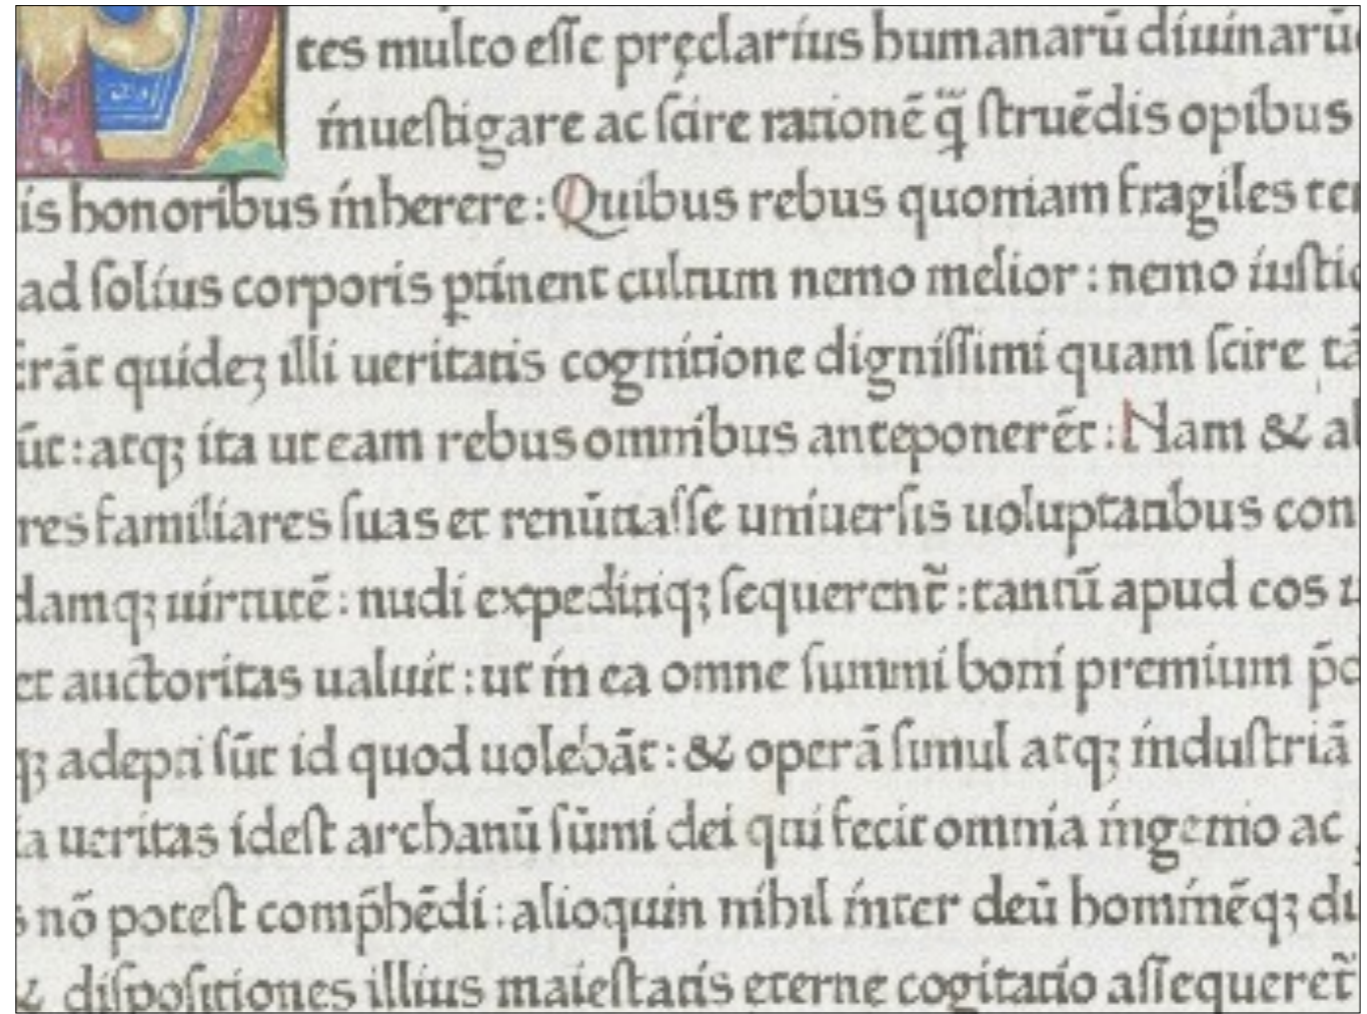 tes multo eſſe pręclarius humanarū diuinarū
inueſtigare ac ſcire rationē q̄ ſtruēdis opibus
is honoribus inherere: Quibus rebus quoniam fragiles
ad ſolius corporis ꝑtinent cultum nemo melior: nemo
quideꝫ illi ueritatis cognitione digniſſimi quam ſcire
ūt: atqꝫ ita ut eam rebus omnibus anteponerēt: Nam &
res familiares ſuas et renūtiaſſe uniuerſis uoluptatibus con
damqꝫ uirtutē: nudi expeditiqꝫ ſequerent᷑: tantū apud eos
et auctoritas ualuit: ut in ea omne ſummi boni premium
qꝫ adepti ſūt id quod uolebāt: & operā ſimul atqꝫ induſtriā
ia ueritas ideſt archanū ſūmi dei qui fecit omnia ingenio ac
nō poteſt comp̄hēdi: alioquin nihil inter deū hominēqꝫ
& diſpoſitiones illius maieſtatis eterne cogitatio aſſequeret᷑